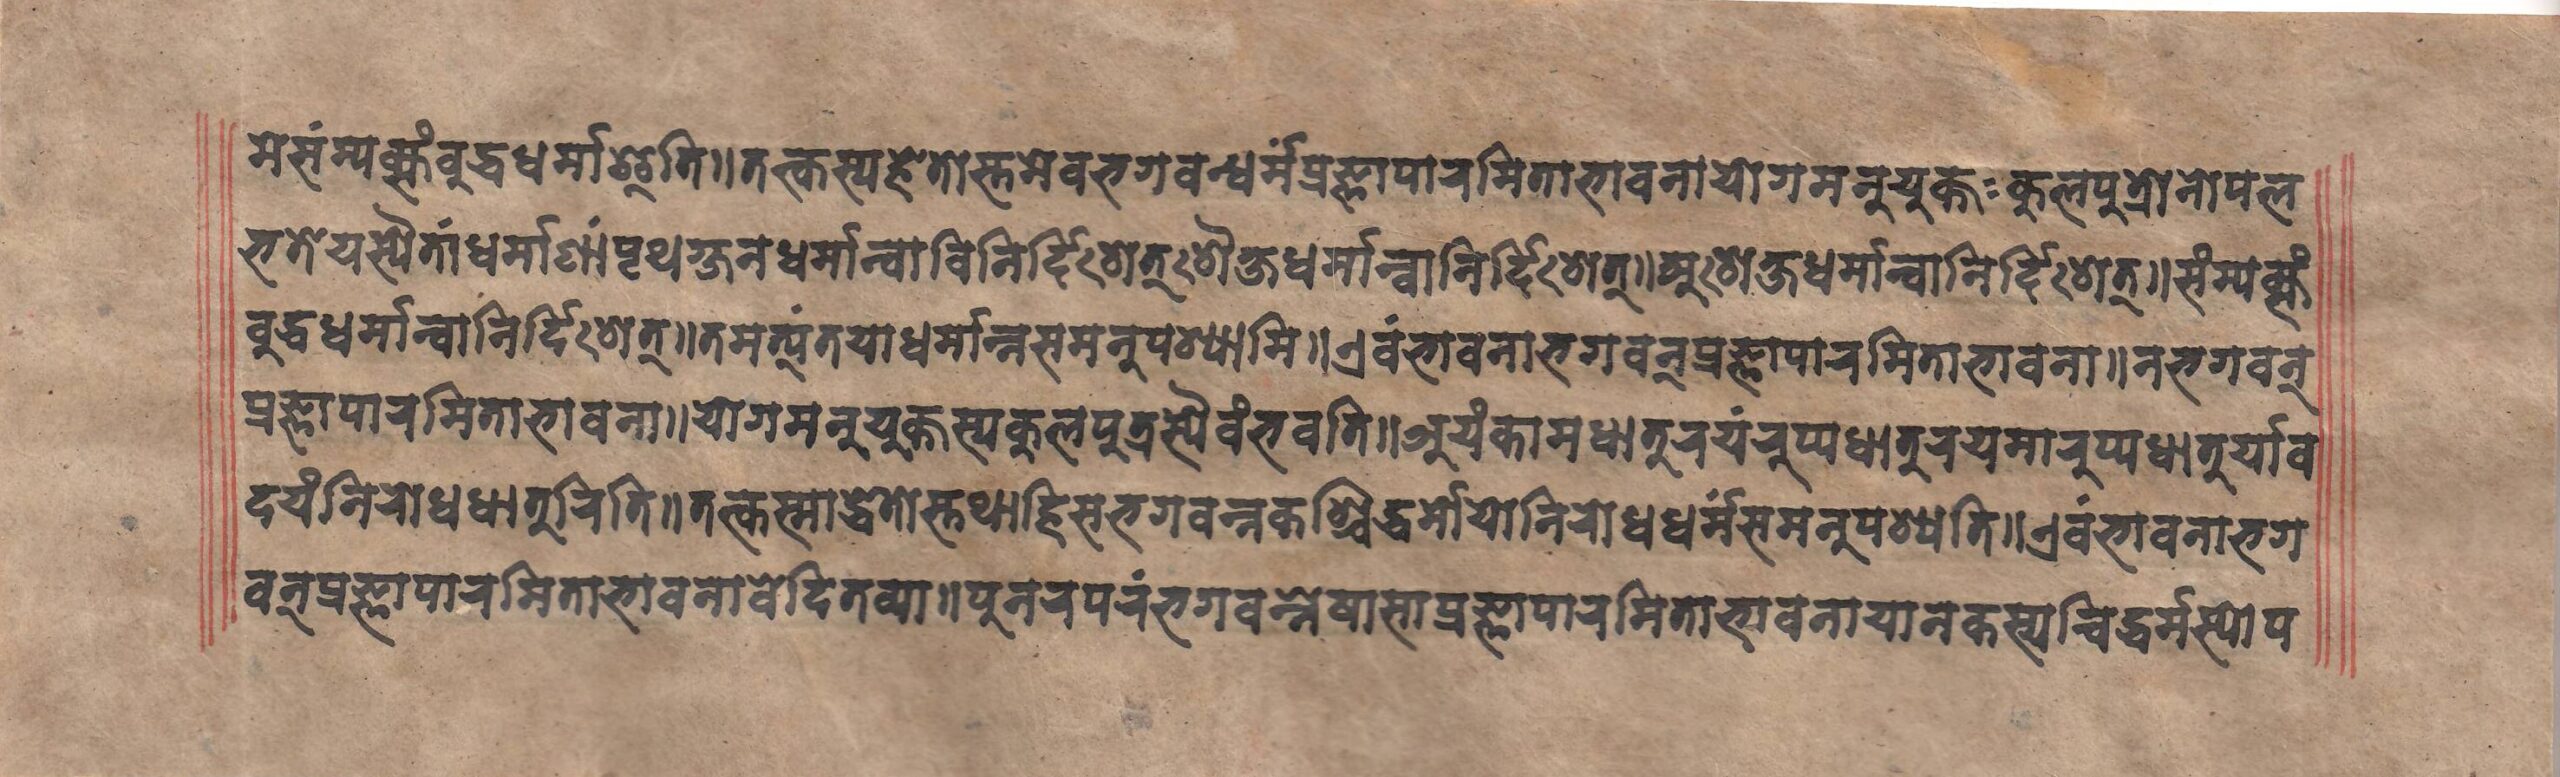 मेसंम्यक्संबुद्धधर्माश्चेति॥तत्कस्यहेतोस्तमेवभगवन्धर्मंप्रज्ञापारमिताभावनायोगमनुयुक्तःकुलपुत्रोनोपल
भतेयस्यैतांधर्माणांपृथग्जनधर्मान्वाविनिर्दिशेत्शैक्षधर्मान्वानिर्दिशेत्॥अशैक्षधर्मान्वानिर्दिशेत्॥संम्यक्सं
बुद्धधर्मान्वानिर्दिशेत्॥तमत्यंतयाधर्मान्नसमनुपश्यामि॥एवंभावनाभगवन्प्रज्ञापारमिताभावना॥नभगवन्
प्रज्ञापारमिताभावना॥योगमनुयुक्तस्यकुलपुत्रस्यैवंभवति॥अयंकामधातुरयंरुप्यधातुरयमारुप्यधातुर्याव
दयंनिरोधधातुरिति॥तत्कस्माद्धेतोस्तथाहिसभगवन्नकश्चिद्धर्मोयोनिरोधधर्मंसमनुपश्यति॥एवंभावनाभग
वन्प्रज्ञापारमिताभावनावेदितव्या॥पुनरपरंभगवन्नेषासाप्रज्ञापारमिताभावनायानकस्यचिद्धर्मस्योप